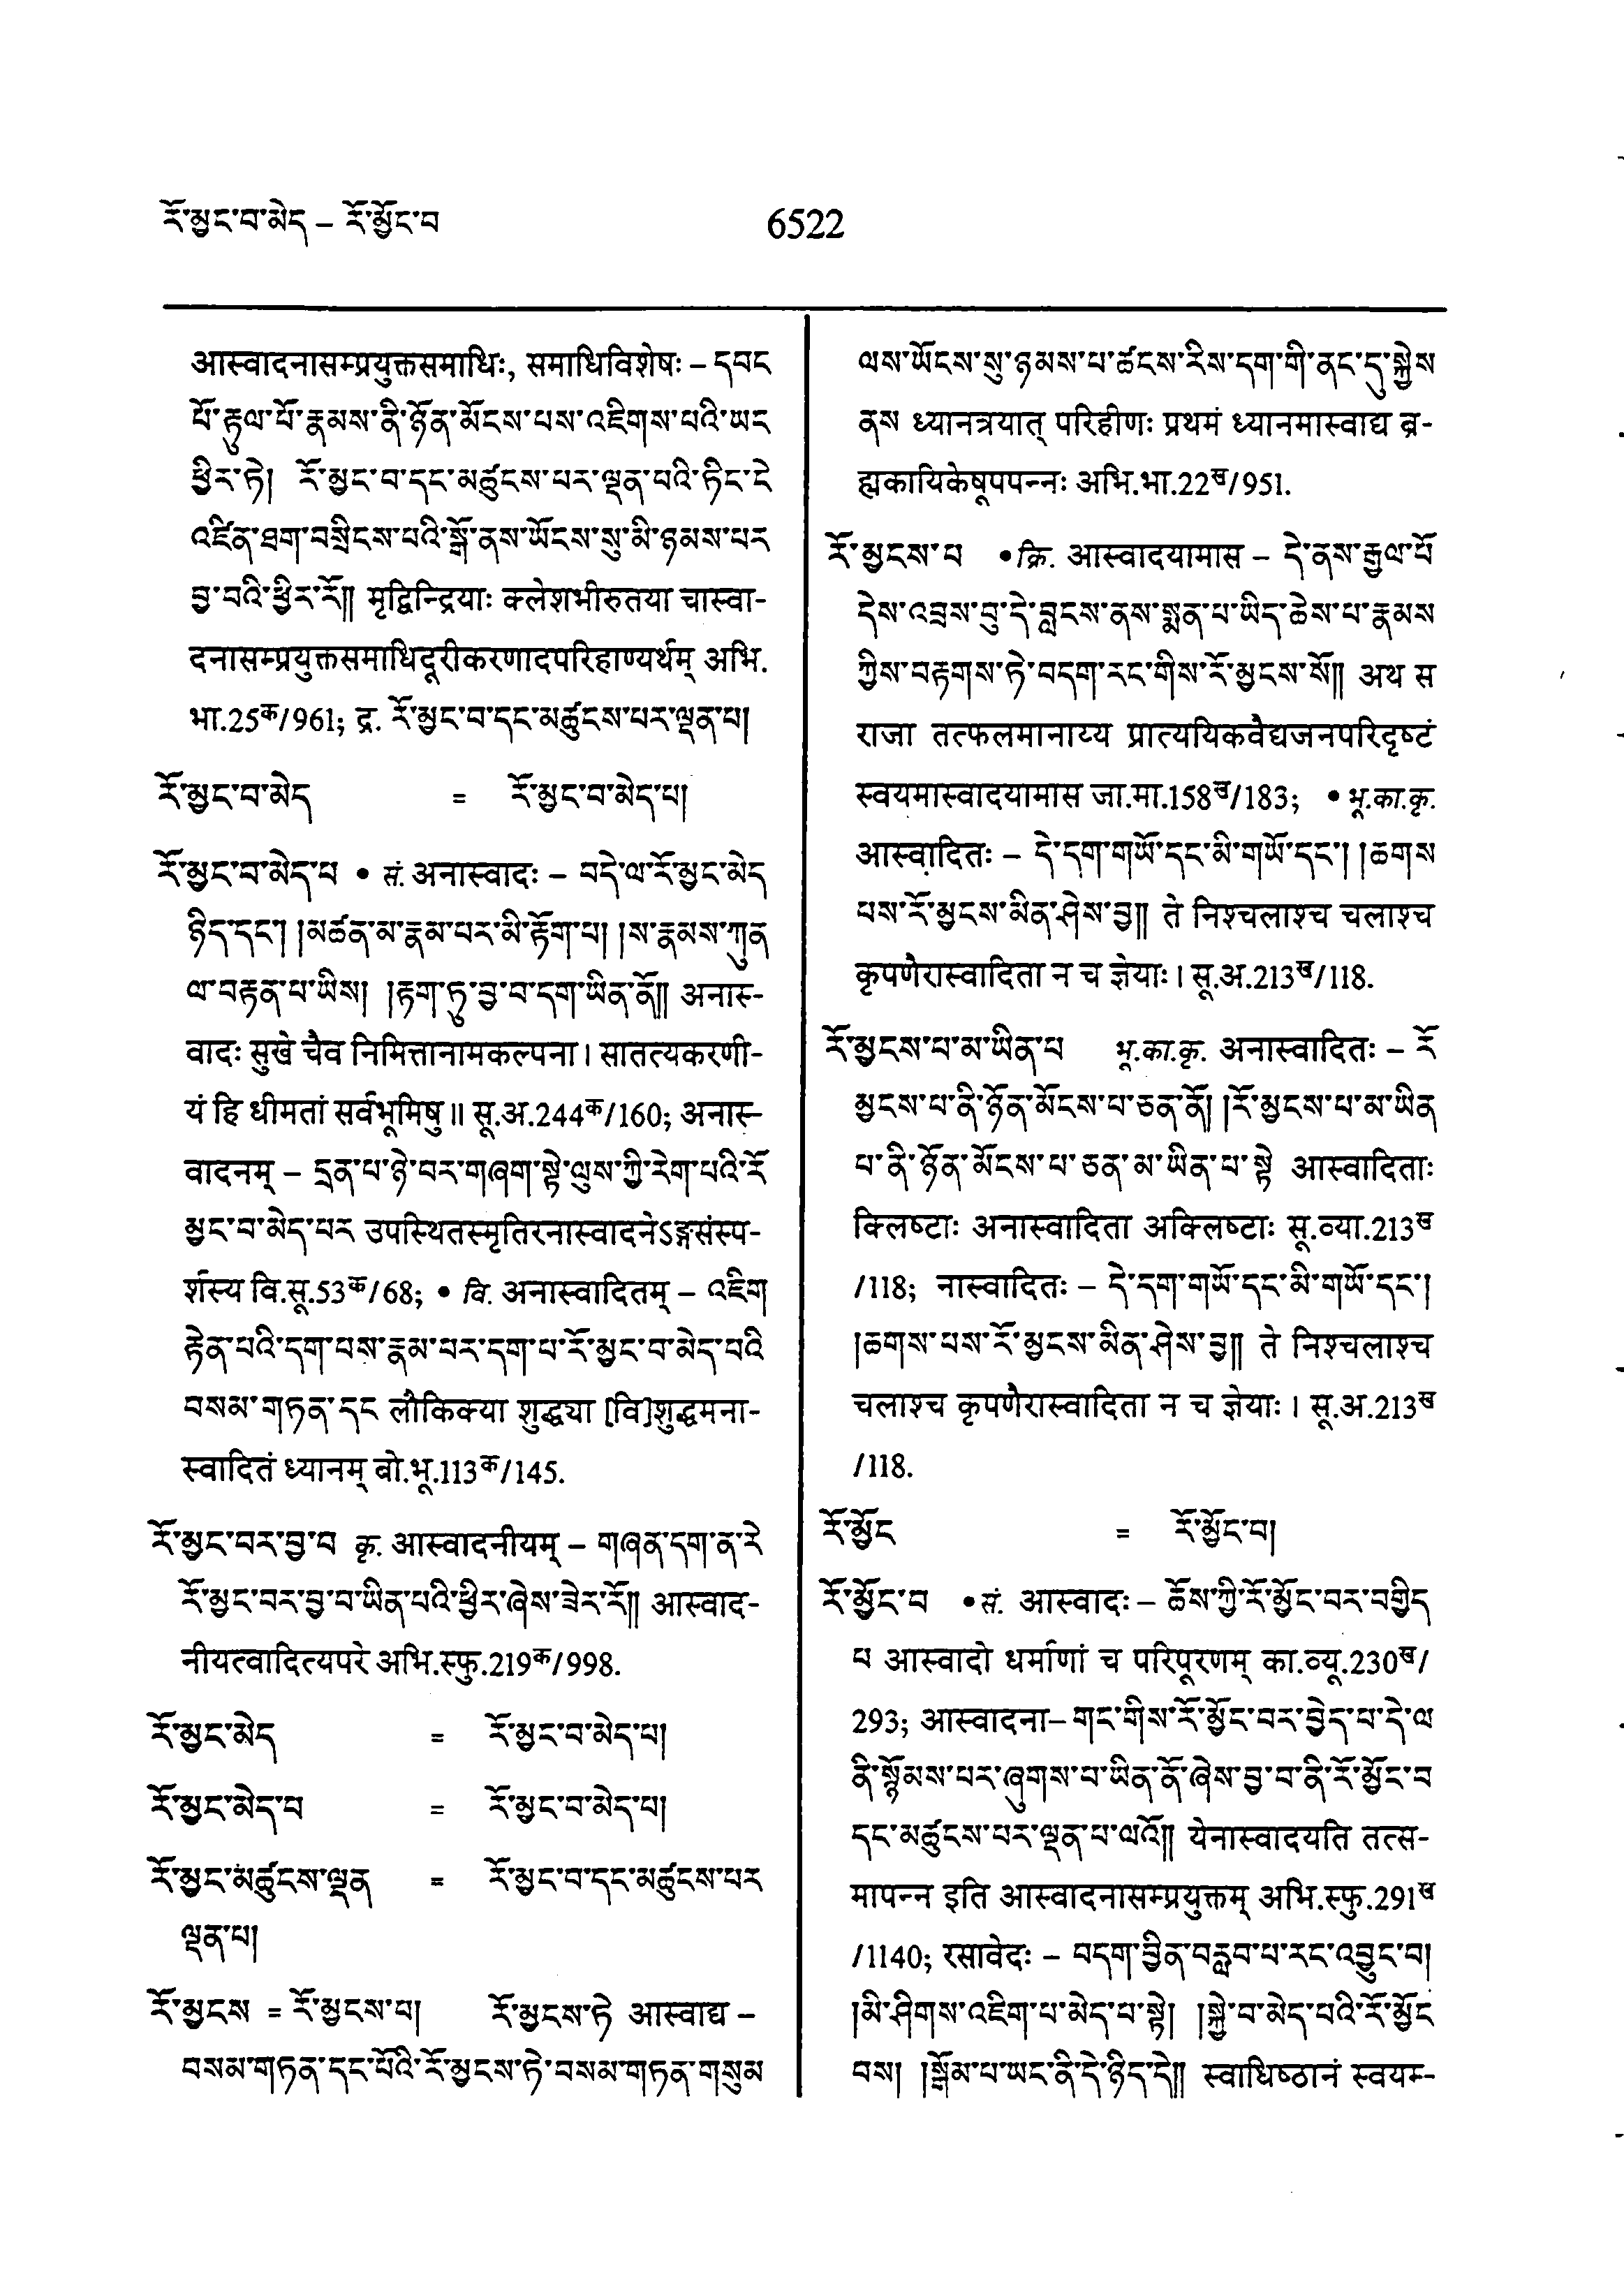 རོ་མྱང་བ་མེད – རོ་མྱོང་བ
6522
आस्वादनासम्प्रयुक्तसमाधिः, समाधिविशेषः – དབང
པོ་རྟུལ་པོ་རྣམས་ནི་ཉོན་མོངས་པས་འཇིགས་པའི་ཡང
ཕྱིར་ཏེ། རོ་མྱང་བ་དང་མཚུངས་པར་ལྡན་པའི་ཏིང་ངེ
འཛིན་ཐག་བསྲིངས་པའི་སྒོ་ནས་ཡོངས་སུ་མི་ཉམས་པར
བྱ་བའི་ཕྱིར་རོ༎ मृद्विन्द्रियाः क्लेशभीरुतया चास्वा-
दनासम्प्रयुक्तसमाधिदूरीकरणादपरिहाण्यर्थम् अभि.
भा.25क/961; द्र. རོ་མྱང་བ་དང་མཚུངས་པར་ལྡན་པ།
རོ་མྱང་བ་མེད = རོ་མྱང་བ་མེད་པ།
རོ་མྱང་བ་མེད་པ • सं. अनास्वादः – བདེ་ལ་རོ་མྱང་མེད
ཉིད་དང་། །མཚན་མ་རྣམ་པར་མི་རྟོག་པ། །ས་རྣམས་ཀུན
ལ་བརྟན་པ་ཡིས། །རྟག་ཏུ་བྱ་བ་དག་ཡིན་ནོ༎ अनास-
वादः सुखे चैव निमित्तानामकल्पना । सातत्यकरणी-
यं हि धीमतां सर्वभूमिषु ॥ सू.अ.244क/160; अनास-
वादनम् – དྲན་པ་ཉེ་བར་གཞག་སྟེ་ལུས་ཀྱི་རེག་པའི་རོ
མྱང་བ་མེད་པར उपस्थितस्मृतिरनास्वादनेऽङ्गसंस्प-
र्शस्य वि.सू.53क/68; • वि. अनास्वादितम् – འཇིག
རྟེན་པའི་དག་པས་རྣམ་པར་དག་པ་རོ་མྱང་བ་མེད་པའི
བསམ་གཏན་དང लौकिक्या शुद्धया [वि]शुद्धमना-
स्वादितं ध्यानम् बो.भू.113क/145.
རོ་མྱང་བར་བྱ་བ कृ. आस्वादनीयम् – གཞན་དག་ན་རེ
རོ་མྱང་བར་བྱ་བ་ཡིན་པའི་ཕྱིར་ཞེས་ཟེར་རོ༎ आस्वाद-
नीयत्वादित्यपरे अभि.स्फु.219क/998.
རོ་མྱང་མེད = རོ་མྱང་བ་མེད་པ།
རོ་མྱང་མེད་པ = རོ་མྱང་བ་མེད་པ།
རོ་མྱང་མཚུངས་ལྡན = རོ་མྱང་བ་དང་མཚུངས་པར
ལྡན་པ།
རོ་མྱངས = རོ་མྱངས་པ། རོ་མྱངས་ཏེ आस्वाद्य –
བསམ་གཏན་དང་པོའི་རོ་མྱངས་ཏེ་བསམ་གཏན་གསུམ
ལས་ཡོངས་སུ་ཉམས་པ་ཚངས་རིས་དག་གི་ནང་དུ་སྐྱེས
ནས ध्यानत्रयात् परिहीणः प्रथमं ध्यानमास्वाद्य ब्र-
ह्मकायिकेषूपपन्नः अभि.भा.22ख/951.
རོ་མྱངས་པ • क्रि. आस्वादयामास – དེ་ནས་རྒྱལ་པོ
དེས་འབྲས་བུ་དེ་བླངས་ནས་སྨན་པ་ཡིད་ཆེས་པ་རྣམས
ཀྱིས་བརྟགས་ཏེ་བདག་རང་གིས་རོ་མྱངས་སོ༎ अथ स
राजा तत्फलमानाय्य प्रात्ययिकवैद्यजनपरिदृष्टं
स्वयमास्वादयामास जा.मा.158ख/183; • भू.का.कृ.
आस्वादितः – དེ་དག་གཡོ་དང་མི་གཡོ་དང་། །ཆགས
པས་རོ་མྱངས་མིན་ཤེས་བྱ༎ ते निश्चलाश्च चलाश्च
कृपणैरास्वादिता न च ज्ञेयाः । सू.अ.213ख/118.
རོ་མྱངས་པ་མ་ཡིན་པ भू.का.कृ. अनास्वादितः – རོ
མྱངས་པ་ནི་ཉོན་མོངས་པ་ཅན་ནོ། །རོ་མྱངས་པ་མ་ཡིན
པ་ནི་ཉོན་མོངས་པ་ཅན་མ་ཡིན་པ་སྟེ आस्वादिताः
क्लिष्टाः अनास्वादिता अक्लिष्टाः सू.व्या.213ख
/118; नास्वादितः – དེ་དག་གཡོ་དང་མི་གཡོ་དང་།
།ཆགས་པས་རོ་མྱངས་མིན་ཤེས་བྱ༎ ते निश्चलाश्च
चलाश्च कृपणैरास्वादिता न च ज्ञेयाः । सू.अ.213ख
/118.
རོ་མྱོང = རོ་མྱོང་བ།
རོ་མྱོང་བ • सं. आस्वादः – ཆོས་ཀྱི་རོ་མྱོང་བར་བགྱིད
པ आस्वादो धर्माणां च परिपूरणम् का.व्यू.230ख/
293; आस्वादना– གང་གིས་རོ་མྱོང་བར་བྱེད་པ་དེ་ལ
ནི་སྙོམས་པར་ཞུགས་པ་ཡིན་ནོ་ཞེས་བྱ་བ་ནི་རོ་མྱོང་བ
དང་མཚུངས་པར་ལྡན་པ་ལའོ༎ येनास्वादयति तत्स-
मापन्न इति आस्वादनासम्प्रयुक्तम् अभि.स्फु.291ख
/1140; रसावेदः – བདག་བྱིན་བརླབ་པ་རང་འབྱུང་བ།
།མི་ཤིགས་འཇིག་པ་མེད་པ་སྟེ། །སྐྱེ་བ་མེད་པའི་རོ་མྱོང
བས། །སྒོམ་པ་ཡང་ནི་དེ་ཉིད་དེ༎ स्वाधिष्ठानं स्वयम-